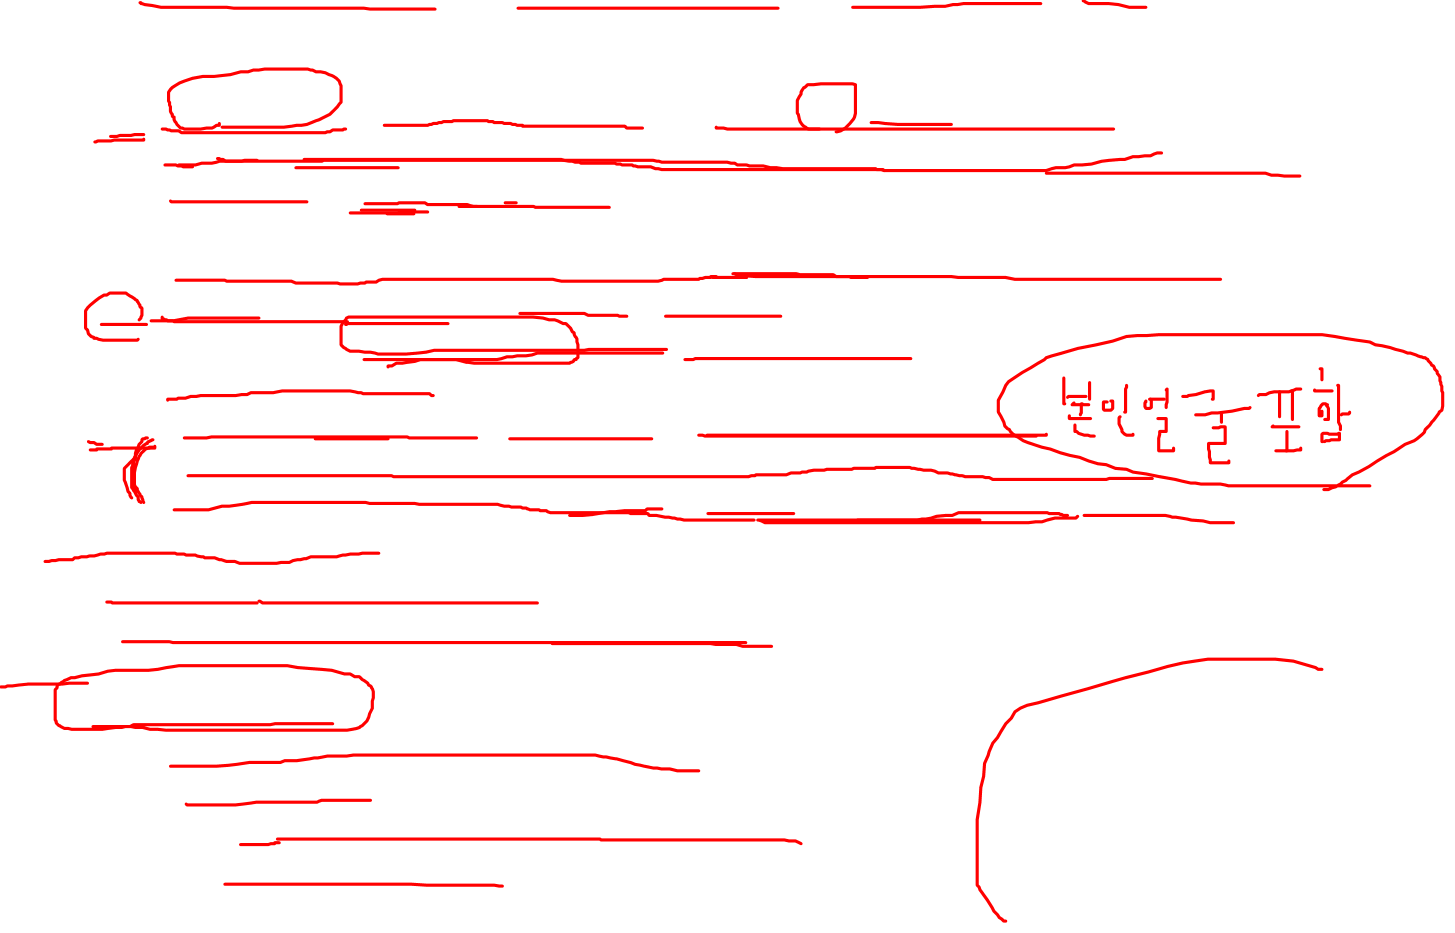 본인얼굴포함